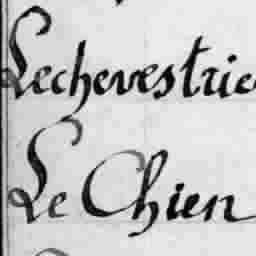 Lechevestrie
Le Chien